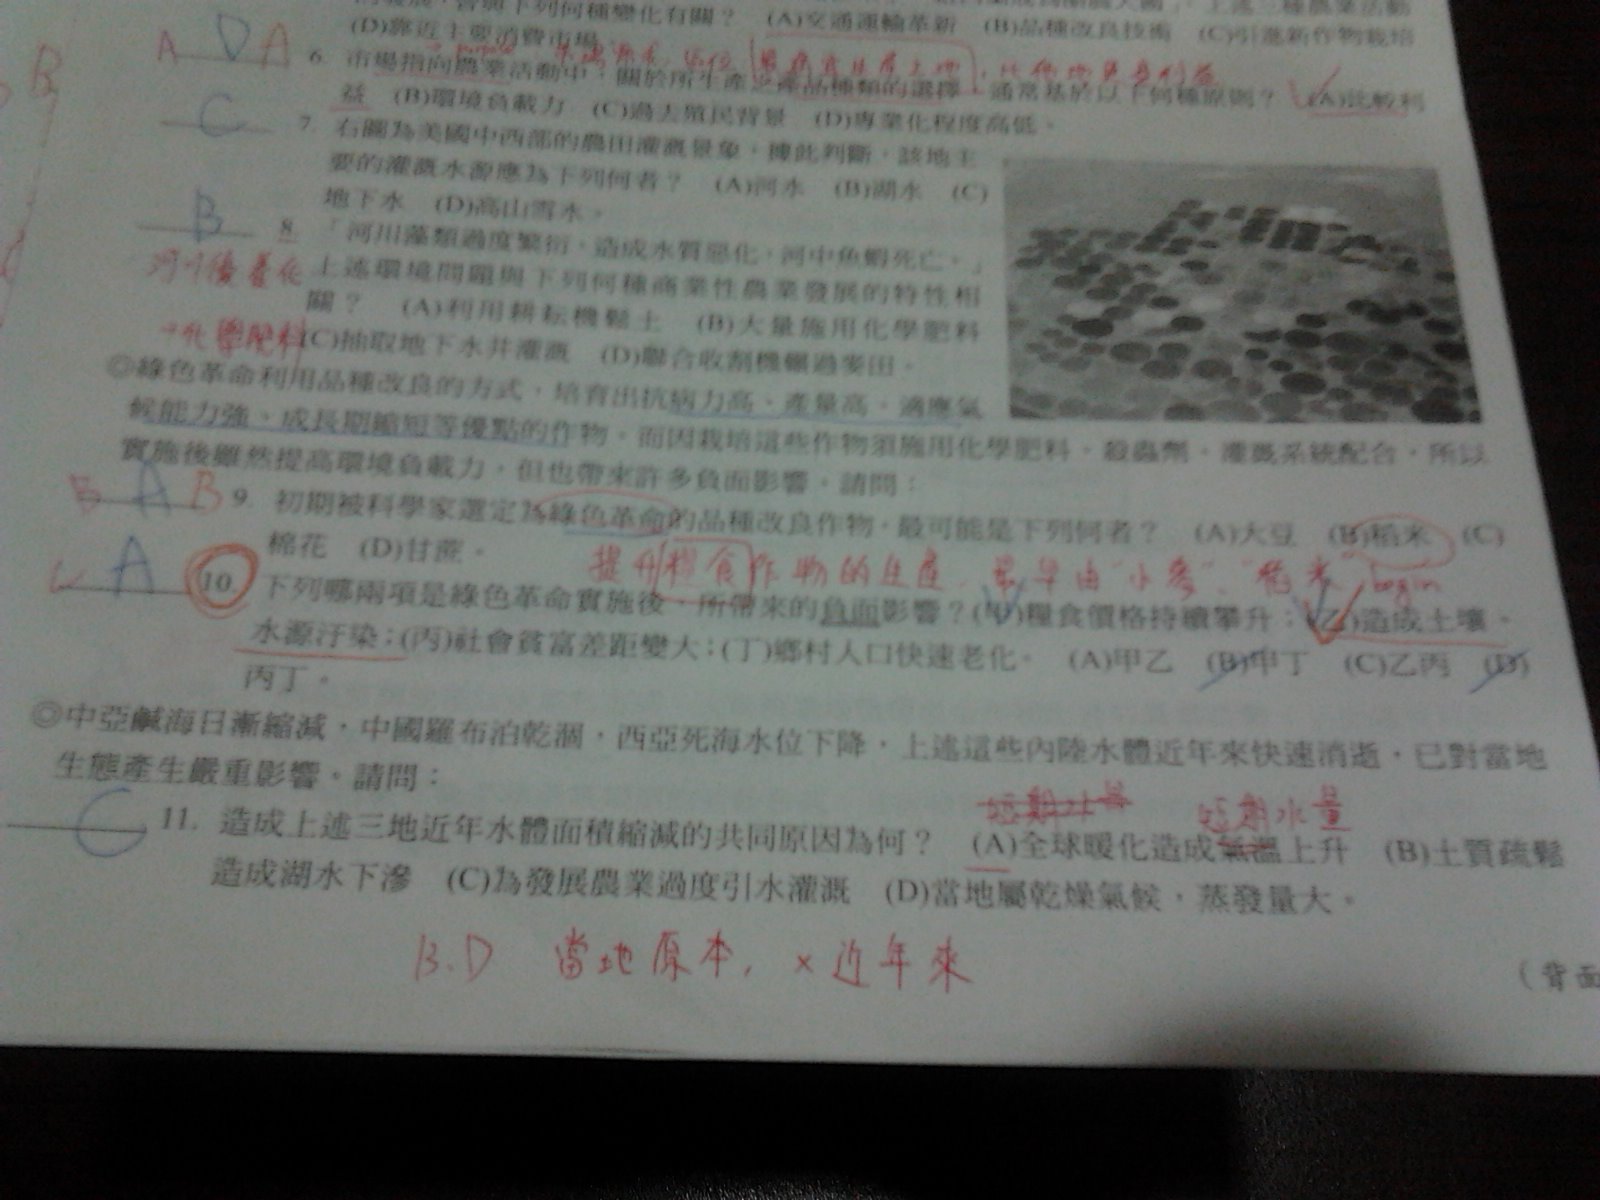 的發展，皆與下列何種變化有關？ (A)交通運輸革新 (B)品種改良技術 (C)引進新作物栽培
(D)靠近主要消費市場
A D A
6. 市場指向農業活動中，關於所生產之產品種類的選擇，通常基於以下何種原則？ (A)比較利
益 (B)環境負載力 (C)過去殖民背景 (D)專業化程度高低。
B
C
7. 右圖為美國中西部的農田灌溉景象，據此判斷，該地主
要的灌溉水源應為下列何者？ (A)河水 (B)湖水 (C)
地下水 (D)高山雪水。
B
8. 「河川藻類過度繁衍，造成水質惡化，河中魚蝦死亡。」
河川優養化
上述環境問題與下列何種商業性農業發展的特性相
關？ (A)利用耕耘機鬆土 (B)大量施用化學肥料
→化學肥料
(C)抽取地下水井灌溉 (D)聯合收割機輾過麥田。
◎綠色革命利用品種改良的方式，培育出抗病力高、產量高、適應氣
候能力強、成長期縮短等優點的作物。而因栽培這些作物須施用化學肥料、殺蟲劑、灌溉系統配合，所以
實施後雖然提高環境負載力，但也帶來許多負面影響。請問：
B A B
9. 初期被科學家選定為綠色革命的品種改良作物，最可能是下列何者？ (A)大豆 (B)稻米 (C)
棉花 (D)甘蔗。
提升糧食作物的生產，最早由"小麥"、"稻米" begin
A
10. 下列哪兩項是綠色革命實施後，所帶來的負面影響？(甲)糧食價格持續攀升；(乙)造成土壤、
水源汙染；(丙)社會貧富差距變大；(丁)鄉村人口快速老化。 (A)甲乙 (B)甲丁 (C)乙丙 (D)
丙丁。
◎中亞鹹海日漸縮減，中國羅布泊乾涸，西亞死海水位下降，上述這些內陸水體近年來快速消逝，已對當地
生態產生嚴重影響。請問：
短期水量
C
11. 造成上述三地近年水體面積縮減的共同原因為何？ (A)全球暖化造成氣溫上升 (B)土質疏鬆
造成湖水下滲 (C)為發展農業過度引水灌溉 (D)當地屬乾燥氣候，蒸發量大。
B.D 當地原本，×近年來
(背面